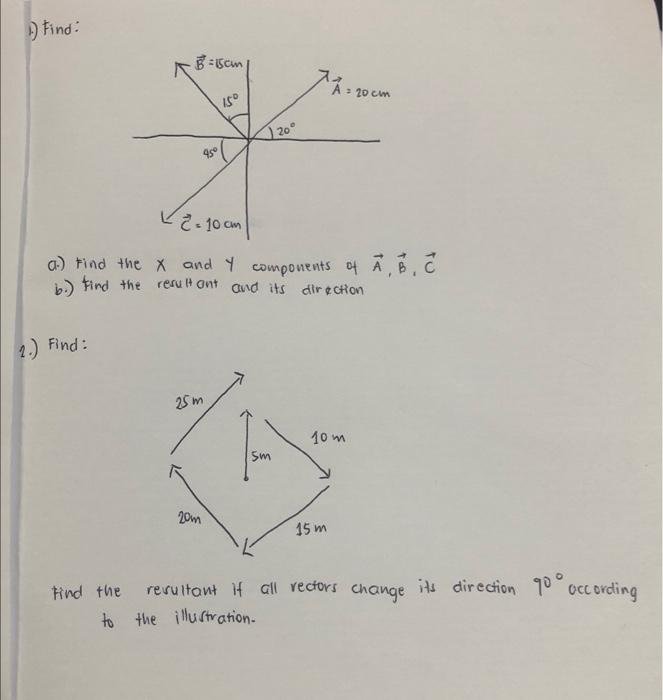 1.) Find:
B⃗ = 15cm
A⃗ = 20 cm
15°
20°
45°
C⃗ = 10 cm
a.) Find the X and Y components of A⃗, B⃗, C⃗
b.) Find the resultant and its direction
2.) Find:
25 m
10 m
5m
20m
15 m
Find the resultant if all vectors change its direction 90° occording
to the illustration.